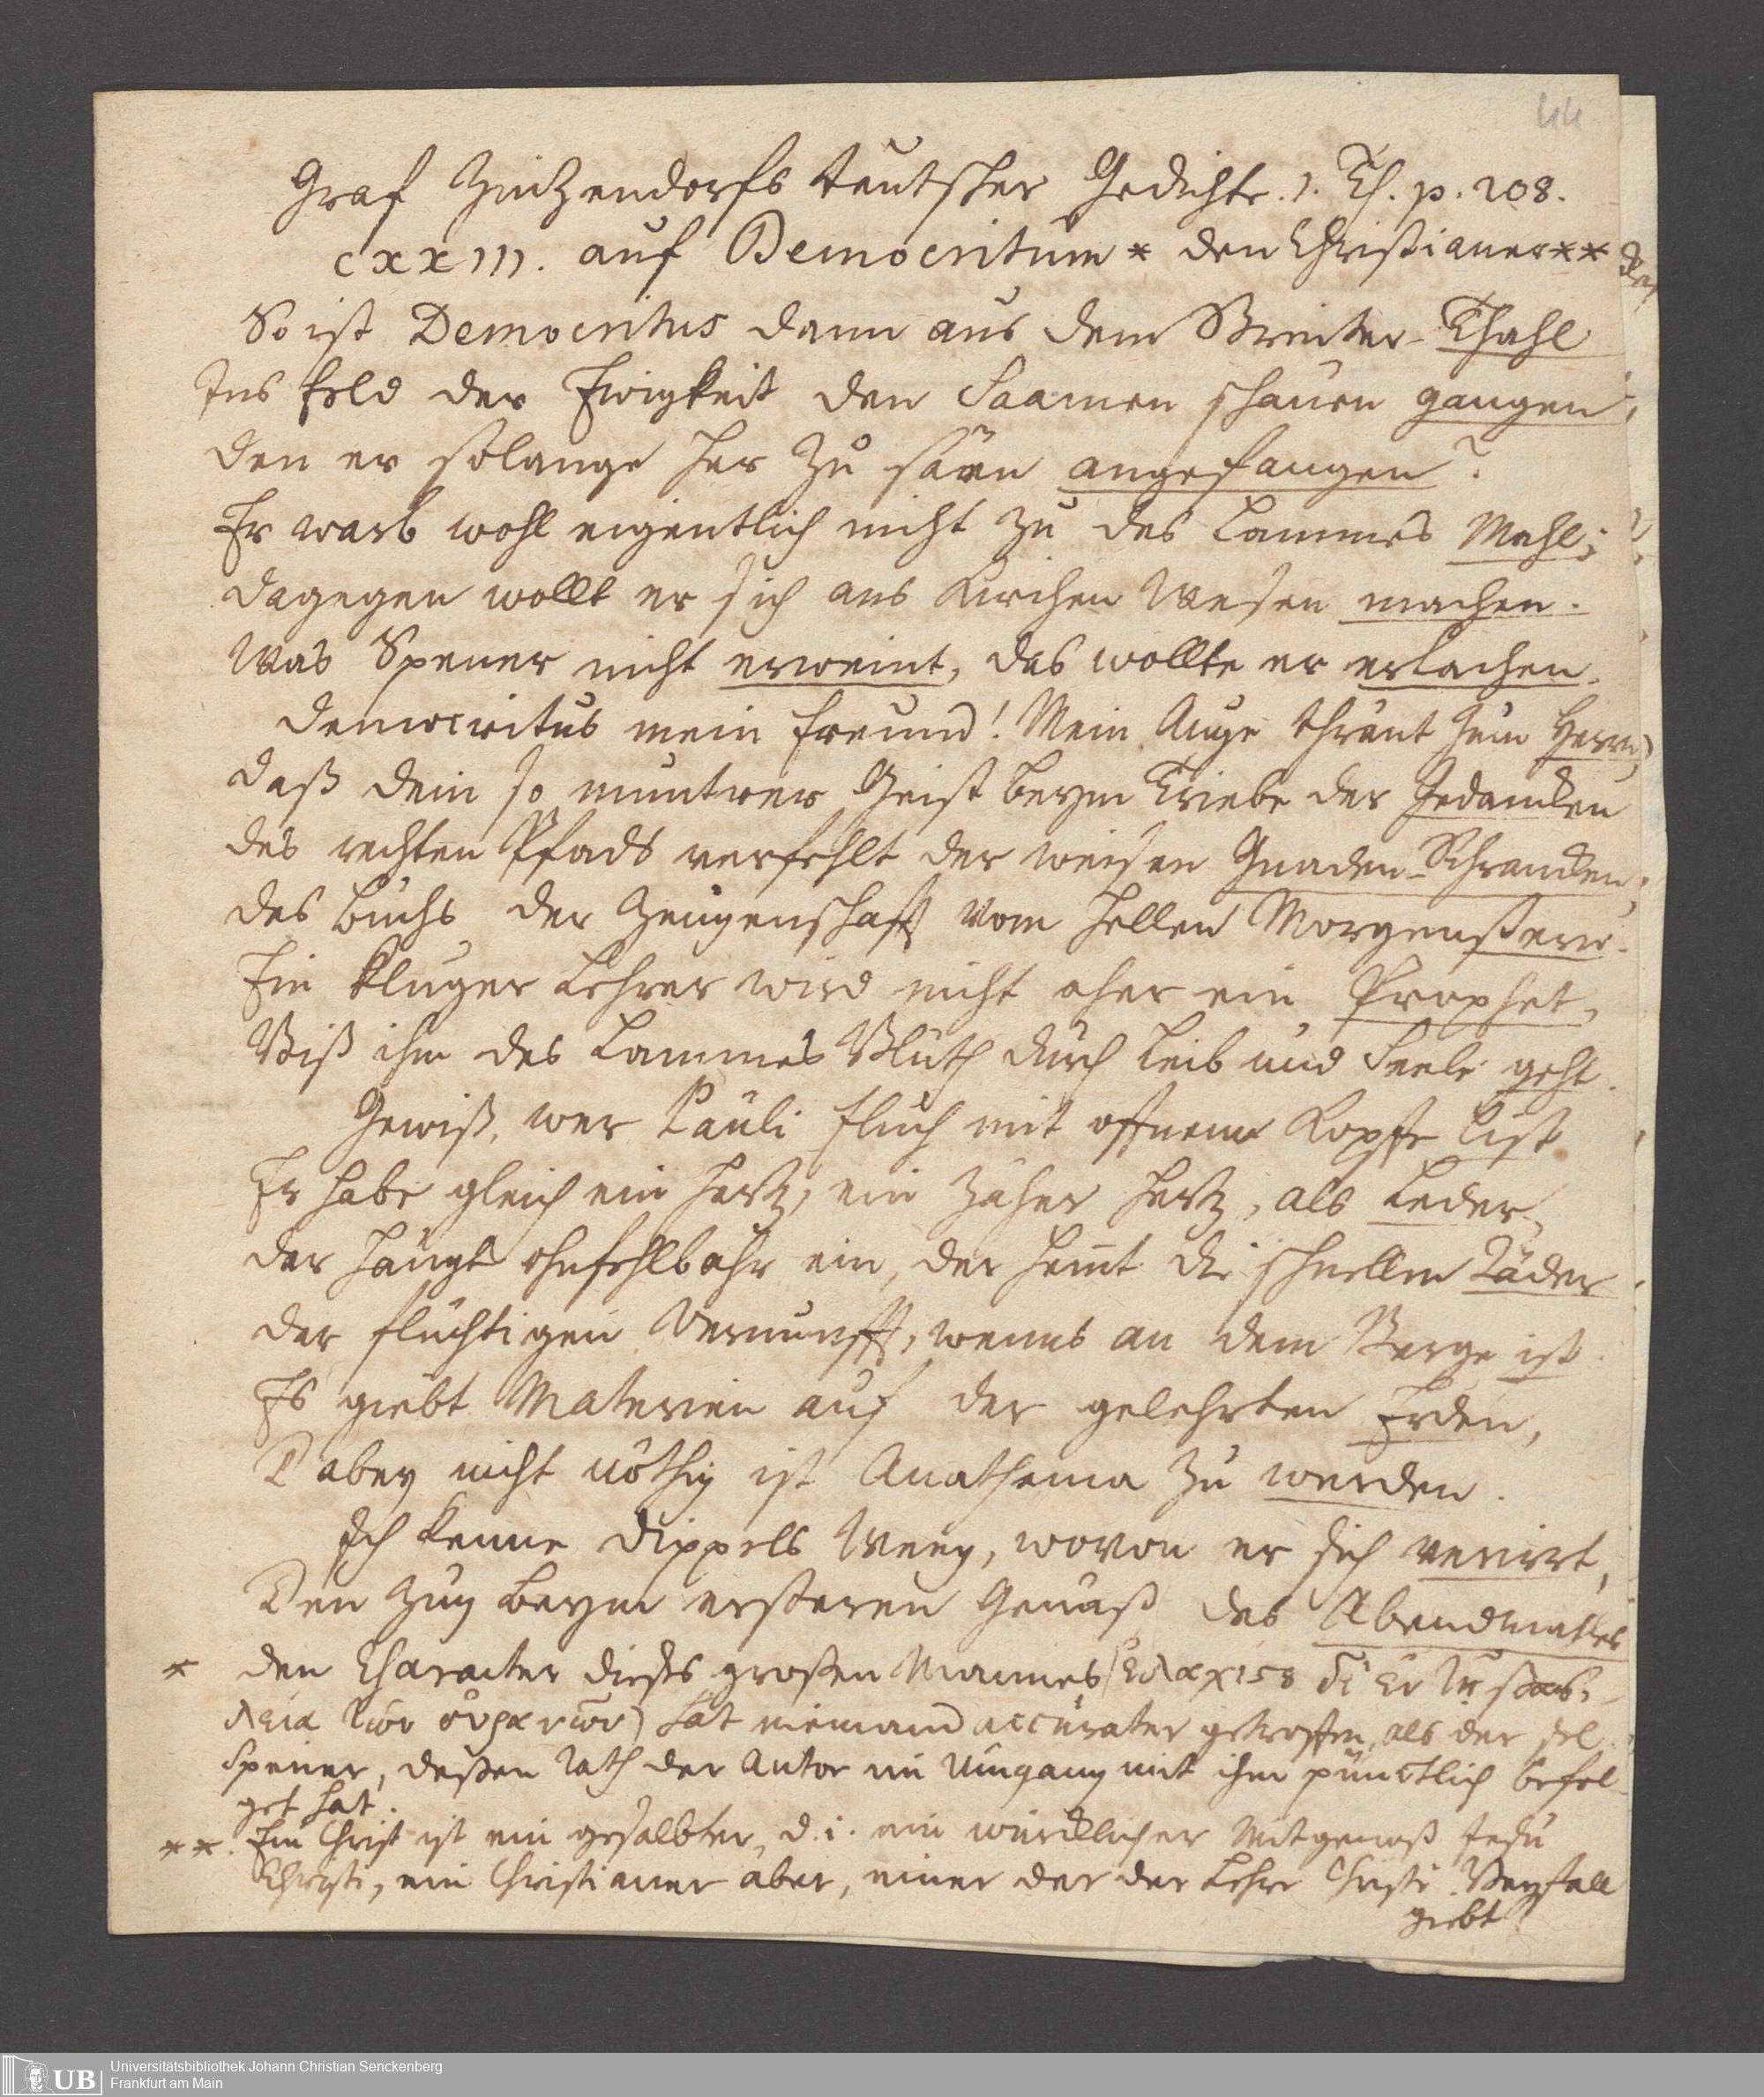 44
Graf Zinzendorfs teutscher Gedichte. 1. Th. p. 208.
CXXIII. auf Democritum * den Christianer **
So ist Democritus dann aus dem Winter-Thahl
Ins Feld der Ewigkeit den Saamen schauen gangen,
den er solange her zu säen angefangen?
Er warb wohl eigentlich nicht zu des Lammes Mahl;
dagegen wollt er sich ans Kirchen Wesen machen.
Was Spener nicht erweint, das wollte er erlachen.
Democritus mein Freund! Mein Auge thränt zum Herrn,
daß dein so muntrer Geist beym Triebe der Gedancken
des rechten Pfads verfehlt der weisen Gnaden-Schrancken,
des Buchs der Zeugenschafft vom hellen Morgenstern.
Ein kluger Lehrer wird nicht eher ein Prophet,
Biß ihm des Lammes Bluth durch Leib und Seele geht.
Gewiß, wer Pauli Fluch mit offnem Kopffe list
Er habe gleich ein Hertz, ein zäher Hertz, als Leder,
der hängt ohnfehlbahr ein, der hemt die schnellen Räder
der flüchtigen Vernunfft, wenns an dem Berge ist.
Es giebt Materien auf der gelehrten Erden,
Dabey nicht nöthig ist Anathema zu werden.
Ich kenne Dippels Weeg, wovon er sich verirrt,
Den Zug beym ersteren Genuß des Abendmahles
* den Character dieses großen Mannes (ἐλαχίστου δὲ ἐν τῇ βασι-
λείᾳ τῶν οὐρανῶν) hat niemand accurater getroffen, als der sel.
Spener, deßen Rath der Autor im Umgang mit ihm pünctlich befol-
get hat.
**. Ein Christ ist ein gesalbter, d. i. ein würcklicher Mitgenoß Jesu
Christi, ein Christianer aber, einer der der Lehre Christi Beyfall
giebt
UB
Universitätsbibliothek Johann Christian Senckenberg
Frankfurt am Main